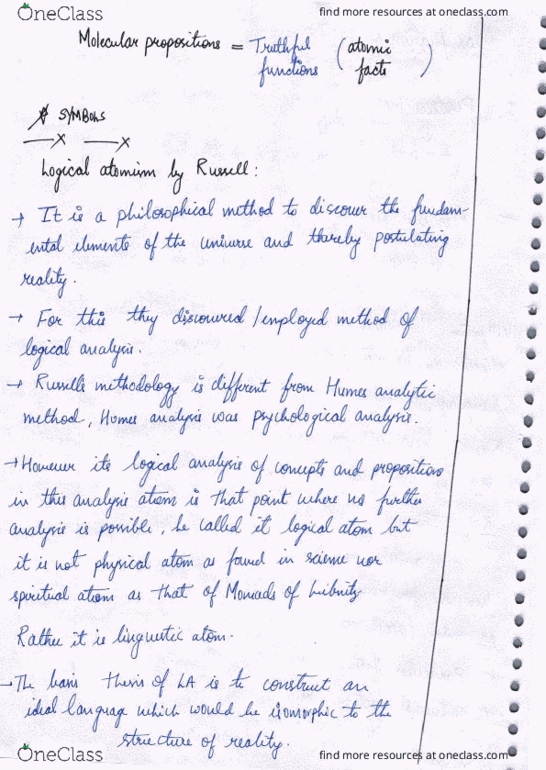 OneClass
find more resources at oneclass.com
Molecular propositions = Truthful functions (atomic facts)
SYMBOLS
Logical atomism by Russell:
→ It is a philosophical method to discover the fundam-
ental elements of the universe and thereby postulating
reality.
→ For this they discovered/employed method of
logical analysis.
→ Russell's methodology is different from Humes analytic
method, Humes analysis was psychological analysis.
→ However its logical analysis of concepts and propositions
in this analysis atom is that point where no further
analysis is possible, he called it logical atom but
it is not physical atom as found in science nor
spiritual atom as that of Monads of Leibnitz
Rather it is linguistic atom.
→ The basis thesis of LA is to construct an
ideal language which would be isomorphic to the
structure of reality.
OneClass
find more resources at oneclass.com